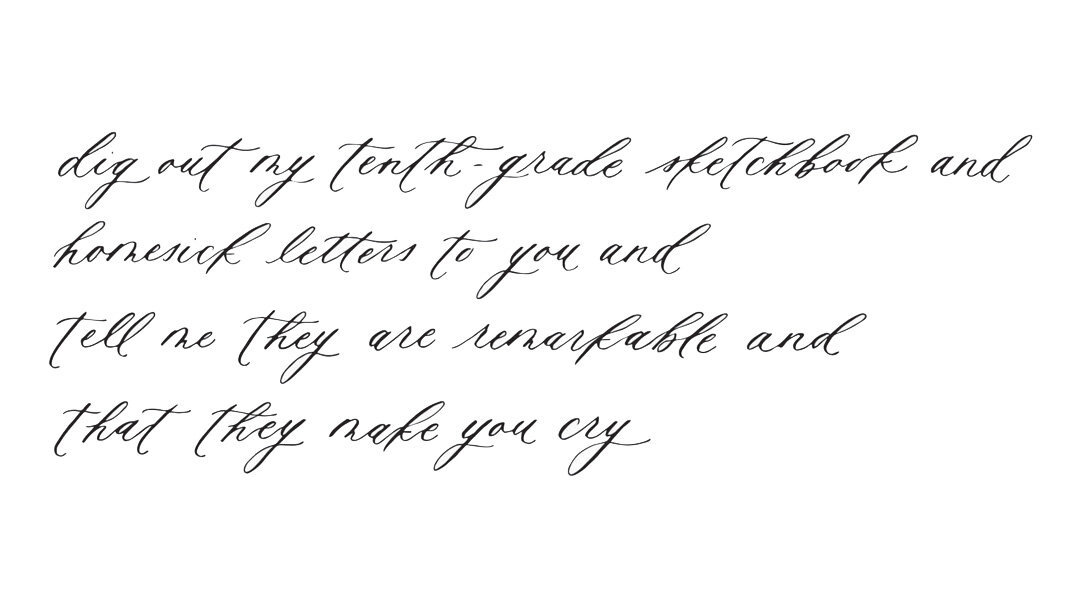 dig out my tenth-grade sketchbook and
homesick letters to you and
tell me they are remarkable and
that they make you cry